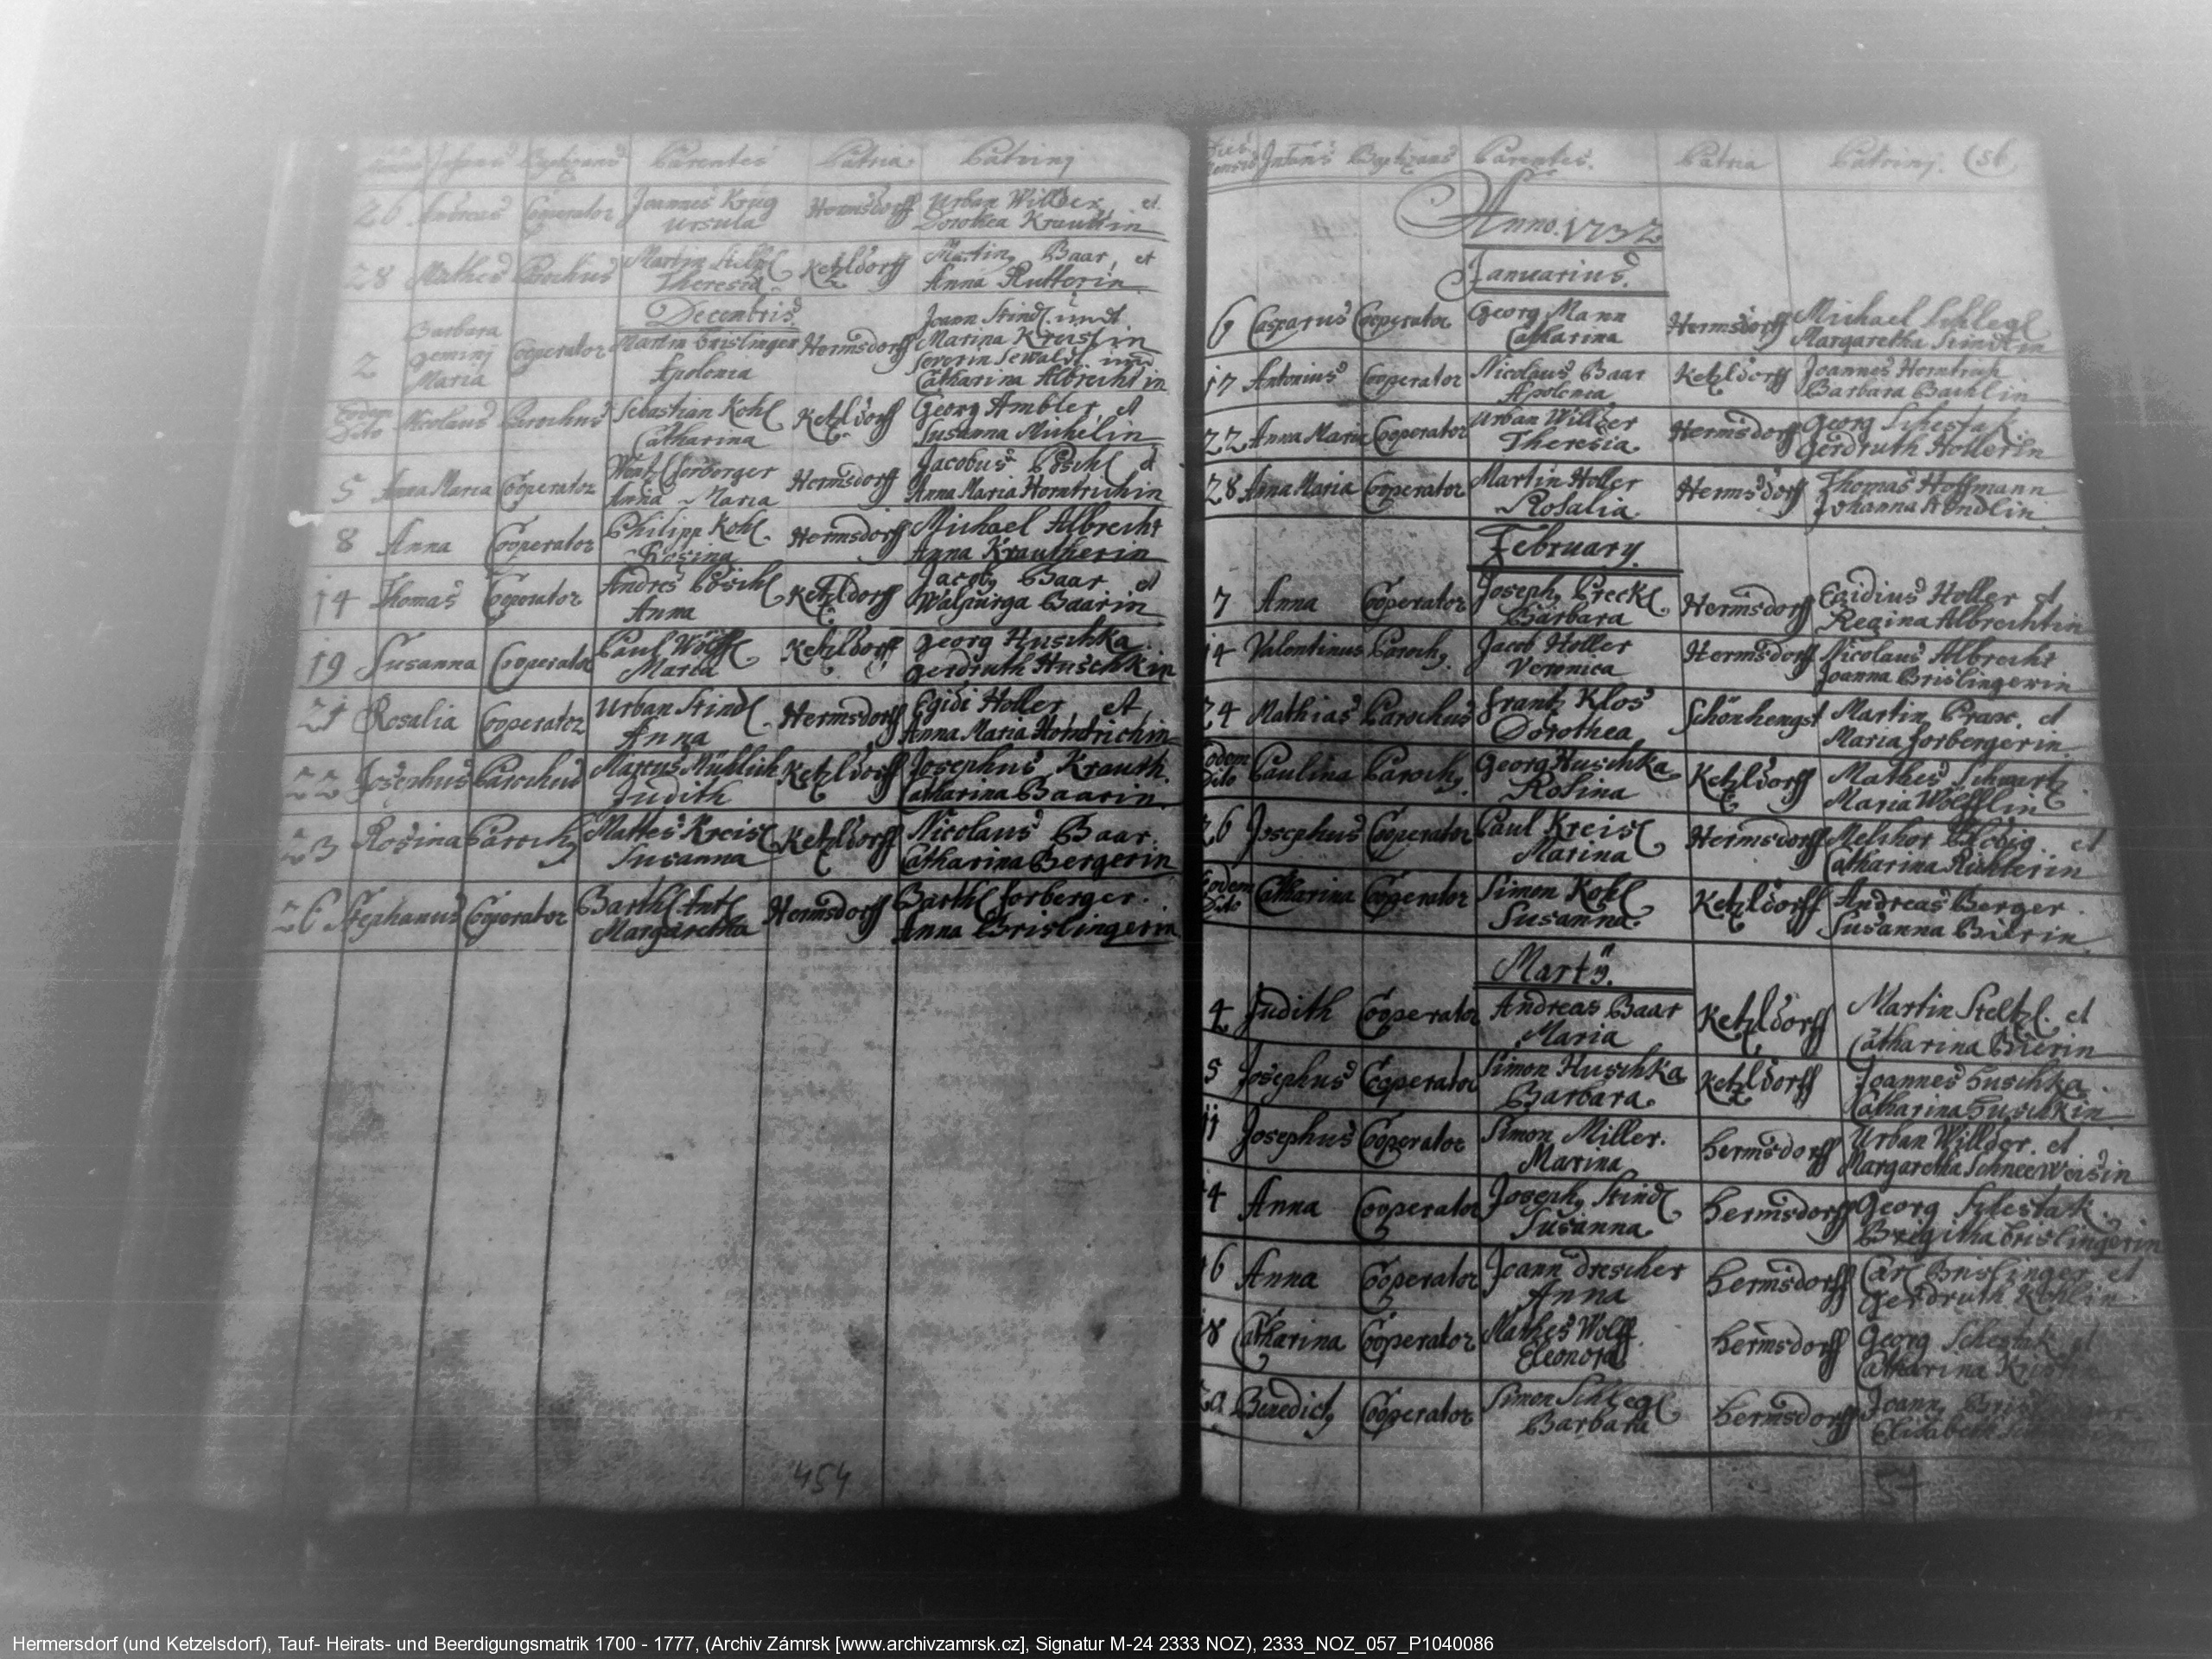 Infans Baptizans Parentes Patria Patrinj
26 Andreas Cooperator Joannes Krug Hermsdorff Urban Willder et
Ursula Dorothea Krautkin
28 Mathes Parochus Martin Steltzl Ketzldorff Martin, Baar, et
Theresia Anna Rutterin
Decembris
Barbara Joann Stindl. undt
2 gemini Cooperator Martin Brislinger Hermsdorff Marina Kreislin
Maria Apolonia Severin Sewaldt und
Catharina Albrechtin
Eodem Dito Nicolaus Parochus Sebastian Kohl Ketzldorff Georg Ambler, et
Catharina Susanna Michelin
5 Anna Maria Cooperator Wentzl forberger Hermsdorff Jacobus Pöschl et
Anna Maria Anna Maria Horntrichin
8 Anna Cooperator Philipp Kohl Hermsdorff Michael Albrecht
Rosina Anna Krautherin
14 Thomas Cooperator Andres Pöschl Ketzldorff Jacob, Baar et
Anna Walpurga Baarin
19 Susanna Cooperator Paul Wölffl Ketzldorff georg Huschka
Maria gerdruth Huschkin
21 Rosalia Cooperator Urban Stindl Hermsdorff Egidi Holler et
Anna Anna Maria Horntrichin
22 Josephus Parochus Marcus Müblich Ketzldorff Josephus Krauth.
Judith Catharina Baarin
23 Rosina Paroch, Mattes Kreisl Ketzldorff Nicolaus Baar.
Susanna Catharina Bergerin
26 Stephanus Cooperator Barthl Antl Hermsdorff Barthl forberger.
Margaretha Anna Brislingerin
454
Infans Baptizans Parentes. Patria Patrinj. (56
Anno. 1732.
Januarius.
6 Casparus Cooperator Georg Mann Hermsdorff Michael Schlegl
Catharina Margaretha Stindlin
17 Antonius Cooperator Nicolaus Baar Ketzldorff Joannes Horntrich
Apolonia Barbara Bachlin
22 Anna Maria Cooperator Urban Willder Hermsdorff Georg Schestak.
Theresia Gerdruth Hollerin
28 Anna Maria Cooperator Martin Holler Hermsdorff Thomas Hoffmann
Rosalia Johanna Stindlin
February.
7 Anna Cooperator Joseph, Preckl Hermsdorff Egidius Holler et
Barbara Regina Albrechtin
14 Valentinus Paroch, Jacob Holler Hermsdorff Nicolaus Albrecht
Veronica Joanna Brislingerin
24 Mathias Parochus frantz Klos Schönhengst Martin Prax. et
Dorothea Maria forbergerin
Eodem Dito Paulina Paroch, Georg Huschka Ketzldorff Mathes Schwartz
Rosina Maria Wölfflin
26 Josephus Cooperator Paul Kreisl Hermsdorff Melchor Blobig. et
Marina Catharina Richterin
Eodem Dito Catharina Cooperator Simon Kohl Ketzldorff Andreas Berger.
Susanna Susanna Bierin
Martÿ.
4 Judith Cooperator Andreas Baar Ketzldorff Martin Steltzl. et
Maria Catharina Bierin
5 Josephus Cooperator Simon Huschka Ketzldorff Joannes Huschka
Barbara Catharina Huschkin
11 Josephus Cooperator Simon Miller. Hermsdorff Urban Willder. et
Marina Margaretha Schneeweisin
14 Anna Cooperator Joseph, Stindl Hermsdorff Georg Schestak.
Susanna Brigitha Brislingerin
16 Anna Cooperator Joann Drescher Hermsdorff Carl Brislinger et
Anna Gerdruth Kohlin
18 Catharina Cooperator Mathes Wolff Hermsdorff Georg Schestak et
Eleonora Catharina
Benedict, Cooperator Simon Schlegl Hermsdorff Joann,
Barbara Elisabeth
57
Hermersdorf (und Ketzelsdorf), Tauf- Heirats- und Beerdigungsmatrik 1700 - 1777, (Archiv Zámrsk [www.archivzamrsk.cz], Signatur M-24 2333 NOZ), 2333_NOZ_057_P1040086